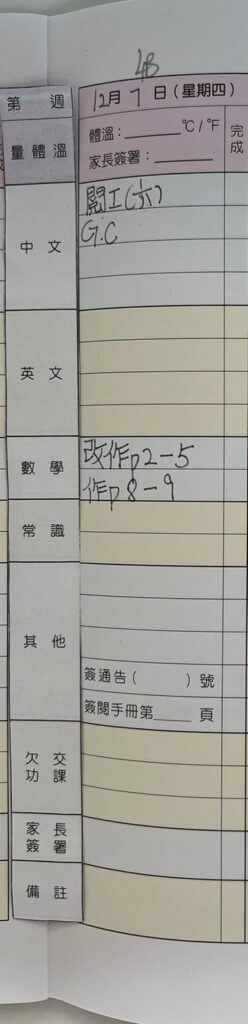 4B
第 週
12月 7 日(星期四)
量體溫
體溫:______℃/℉
家長簽署:______
完成
中文
閱工(1/六)
G.C
英文
數學
改作p2-5
作p8-9
常識
其他
簽通告( )號
簽閱手冊第____頁
欠交功課
家長簽署
備註